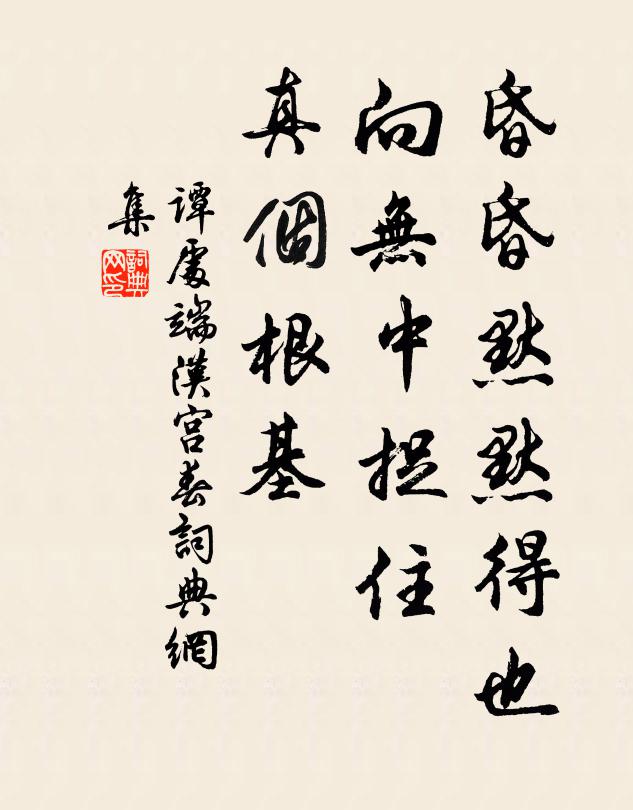 昏昏默默得也
向無中捉住
真個根基
譚處端漢宮春詞典網
集
詞典
网印